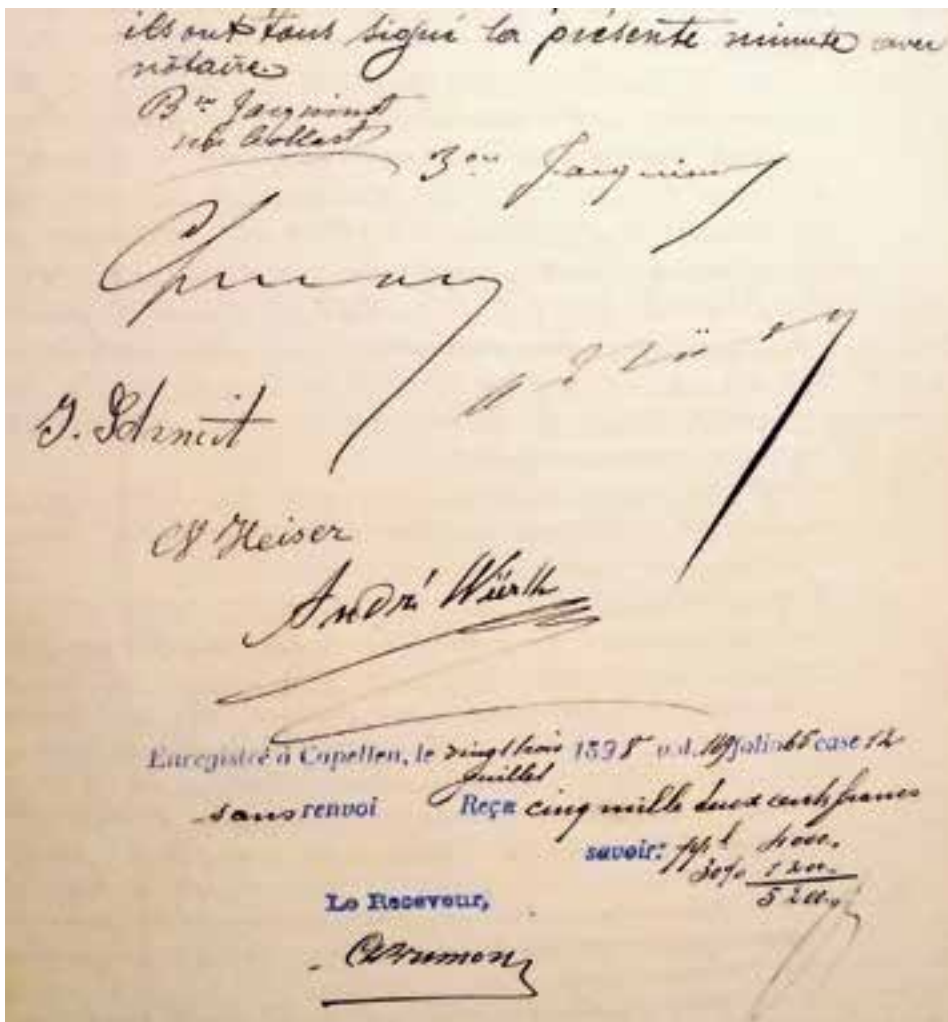 ils ont tous signé la présente minute avec
nôtaire
Bne Jacquinot
née Collart
Bon Jacquinot
J. Schmit
N Heiser
André Würth
Enregistré à Capellen, le vingt trois 1898 v.d. 109 folio 65 case 12
juillet
sans renvoi Reçu cinq mille deux cents francs
savoir: ppl 4000.
30% 1200.
5200.
Le Receveur,